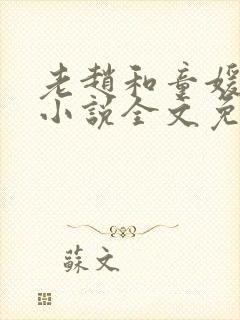 老趙和童媛
小說全文免
蘇文